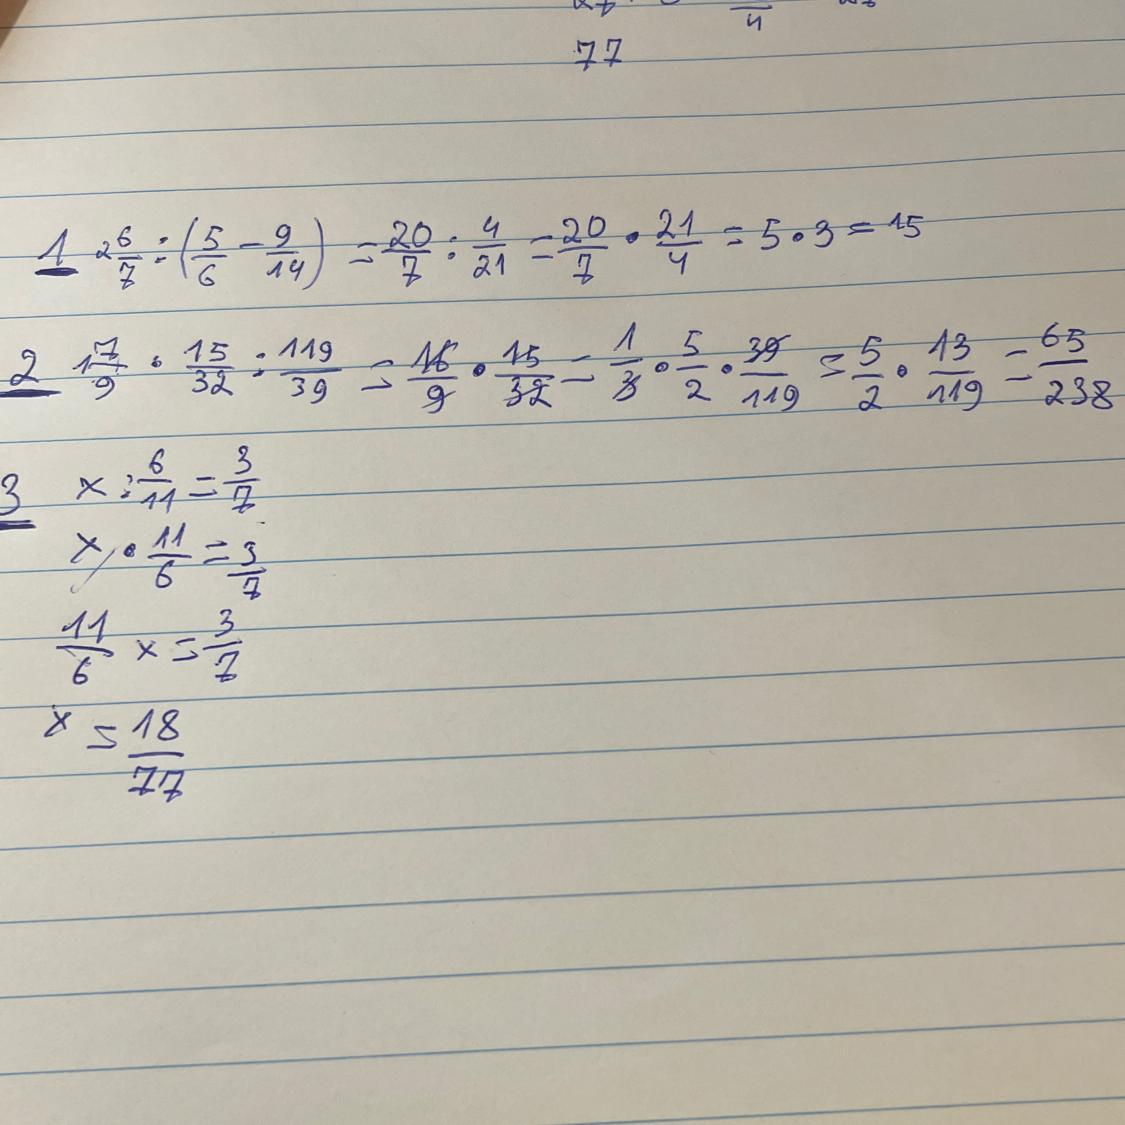 4
77
1 2 6/7 : (5/6 - 9/14) = 20/7 : 4/21 = 20/7 • 21/4 = 5 • 3 = 15
2 1 7/9 • 15/32 : 119/39 = 16/9 • 15/32 = 1/3 • 5/2 • 39/119 = 5/2 • 13/119 = 65/238
3 x : 6/11 = 3/7
x • 11/6 = 3/7
11/6 x = 3/7
x = 18/77